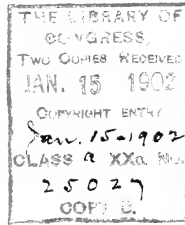 THE LIBRARY OF
CONGRESS,
TWO COPIES RECEIVED
JAN. 15 1902
COPYRIGHT ENTRY
Jan. 15-1902
CLASS a XXc. No.
25027
COPY B.